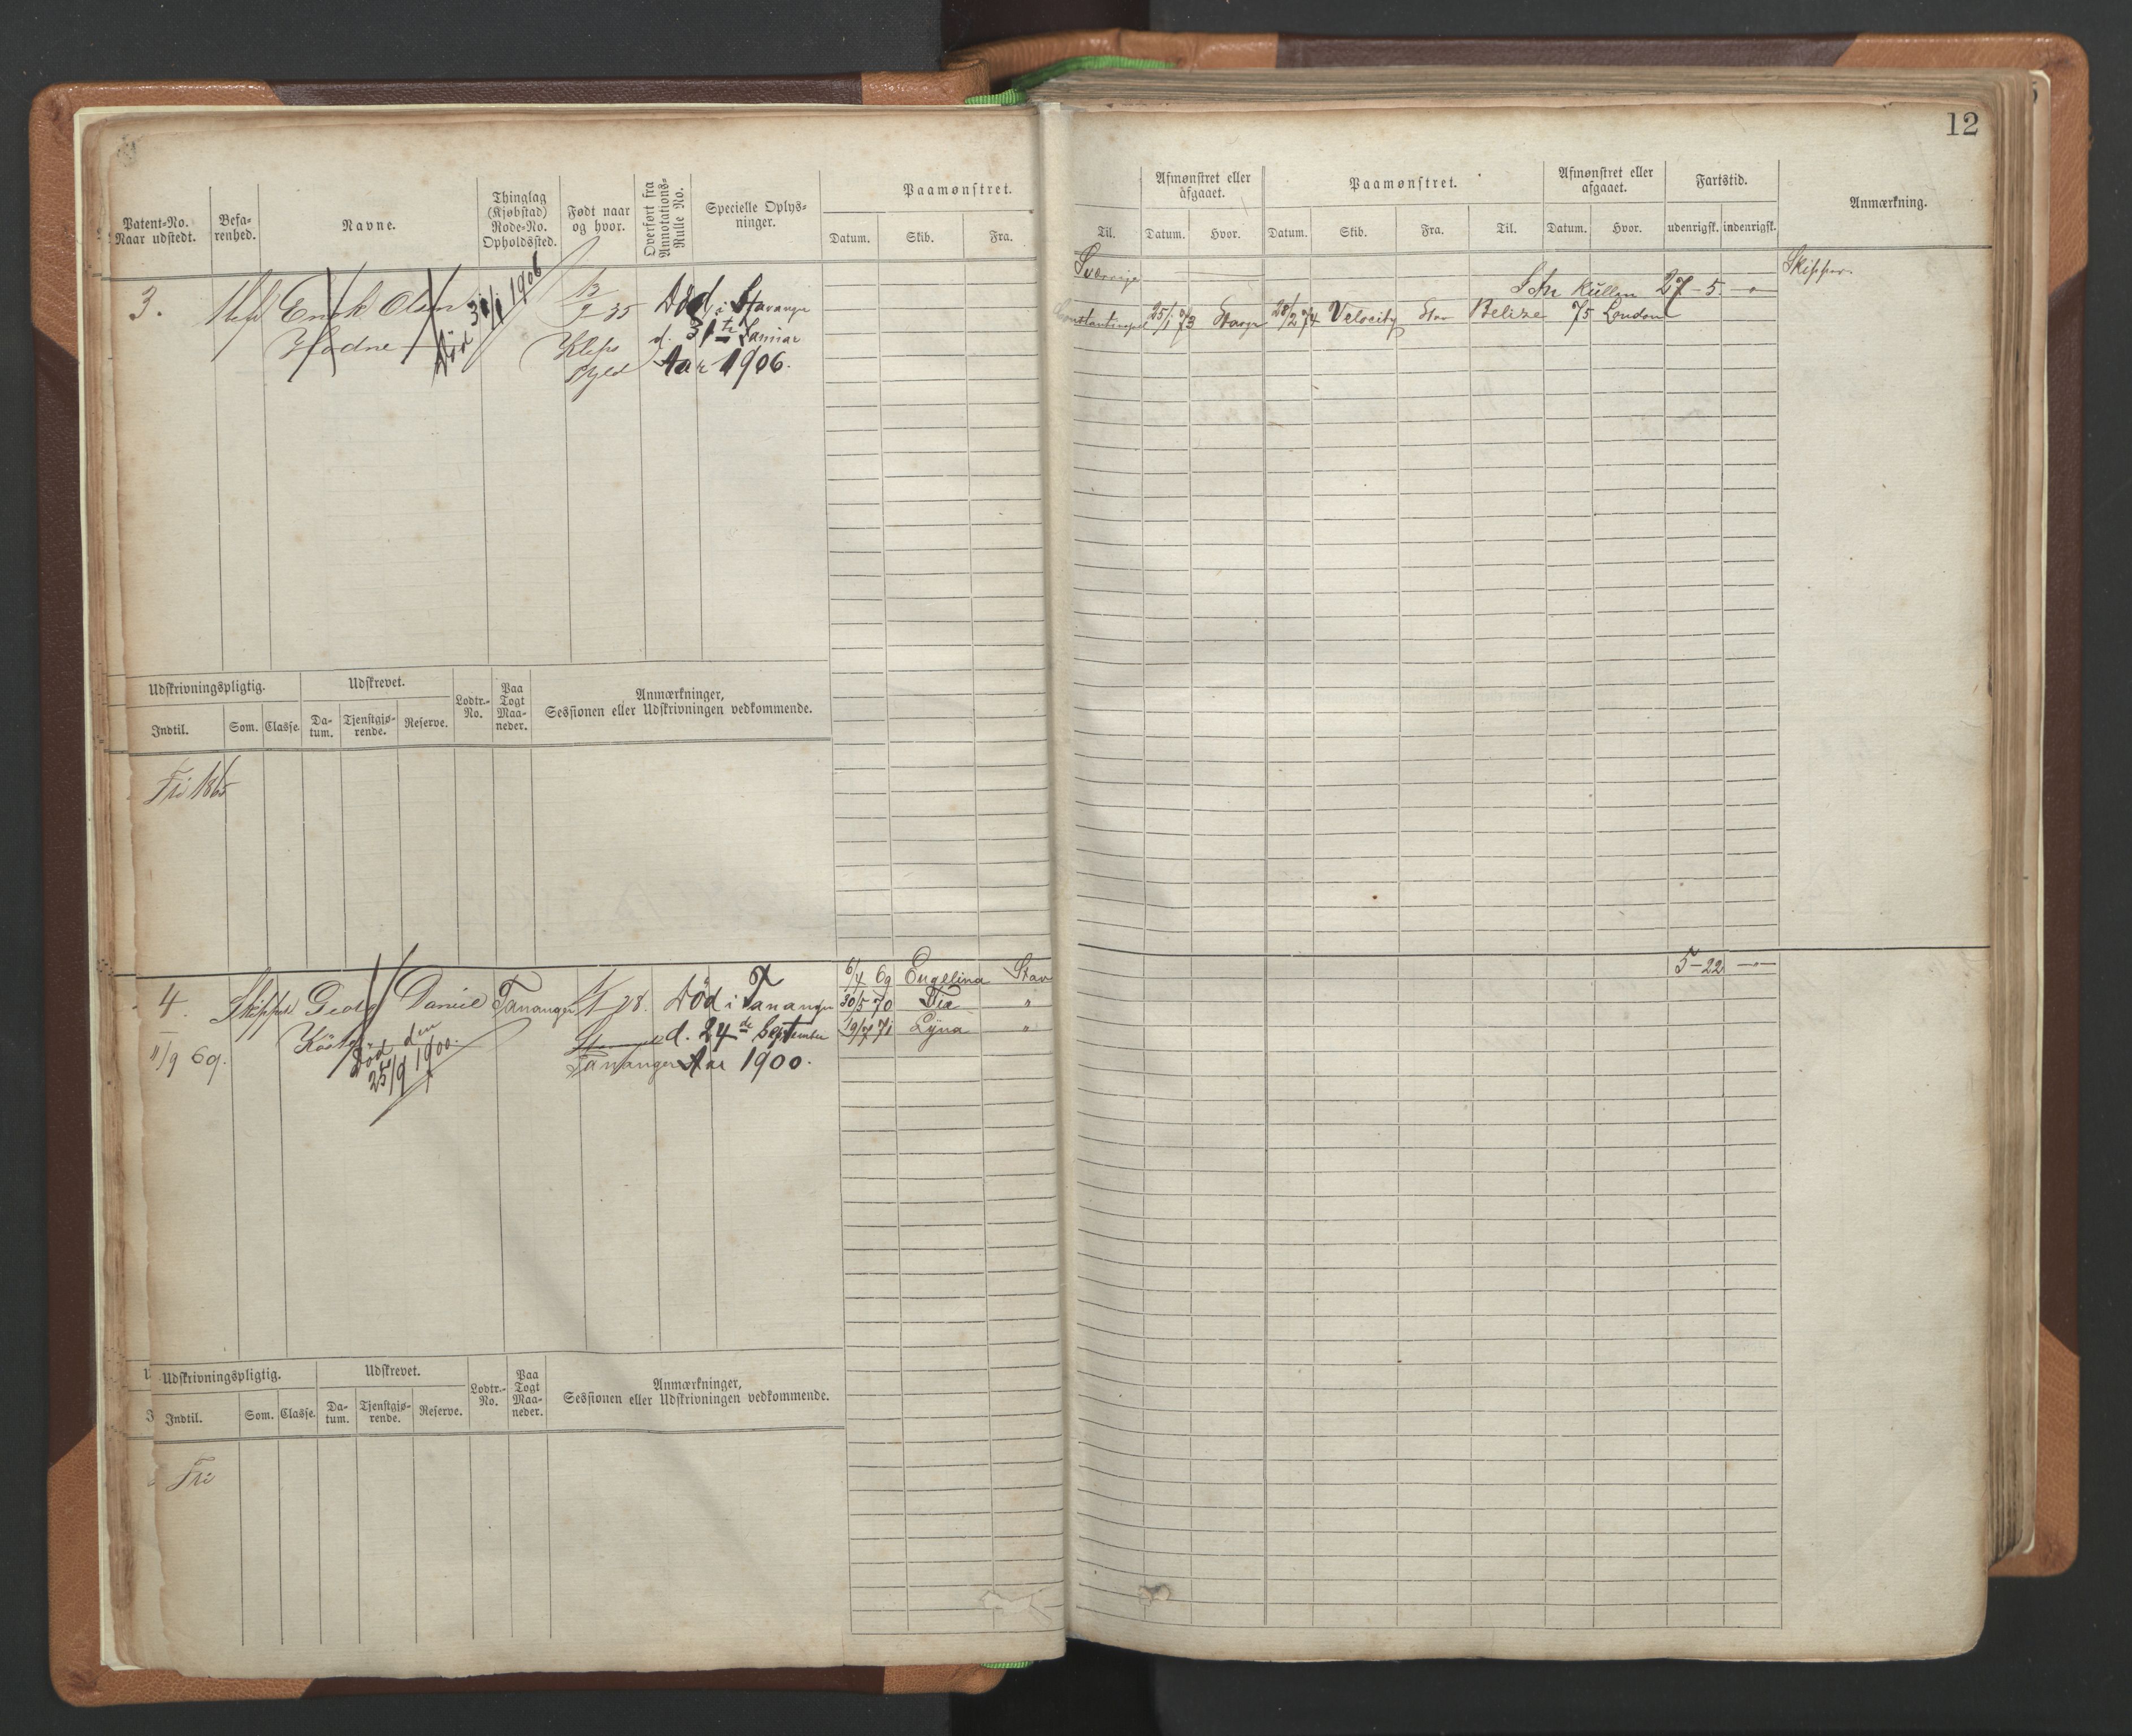 12
Patent-No. Naar udstedt.
Befa-renhed.
Navne.
Thinglag (Kjøbstad) Rode-No. Opholdssted.
Født naar og hvor.
Overført fra Annotations-Rulle No.
Specielle Oplys-ninger.
Paamønstret.
Datum. Skib. Fra.
Til.
Afmønstret eller afgaaet.
Datum. Hvor.
Paamønstret.
Datum. Skib. Fra. Til.
Afmønstret eller afgaaet.
Datum. Hvor.
Fartstid.
udenrigsk. indenrigsk.
Anmærkning.
3.
Olsen
Hodne
Død 31/1 1906
13/9 35
Klep
Død i Stavanger
d. 31te Januar
Aar 1906.
Sverrige
Skipper
27 - 5 - "
Constantinopel 25/1 73 Stavgr 28/2 74 Velocity Stav Belize 75 London
Udskrivningspligtig.
Udskrevet.
Lodtr.-No.
Paa Togt Maa-neder.
Anmærkninger,
Sessionen eller Udskrivningen vedkommende.
Indtil. Som. Classe. Da-tum. Tjenstgjø-rende. Reserve.
Fri 1865
4.
11/9 69.
Georg Daniel
Død den
25/9 1900.
Tananger
28.
Tananger
Død i Tananger
d. 24de September
Aar 1900.
6/4 69 Engelina Stav
30/5 70 "
19/7 71 Lyna "
5-22 - "
Udskrivningspligtig.
Udskrevet.
Lodtr.-No.
Paa Togt Maa-neder.
Anmærkninger,
Sessionen eller Udskrivningen vedkommende.
Indtil. Som. Classe. Da-tum. Tjenstgjø-rende. Reserve.
Fri